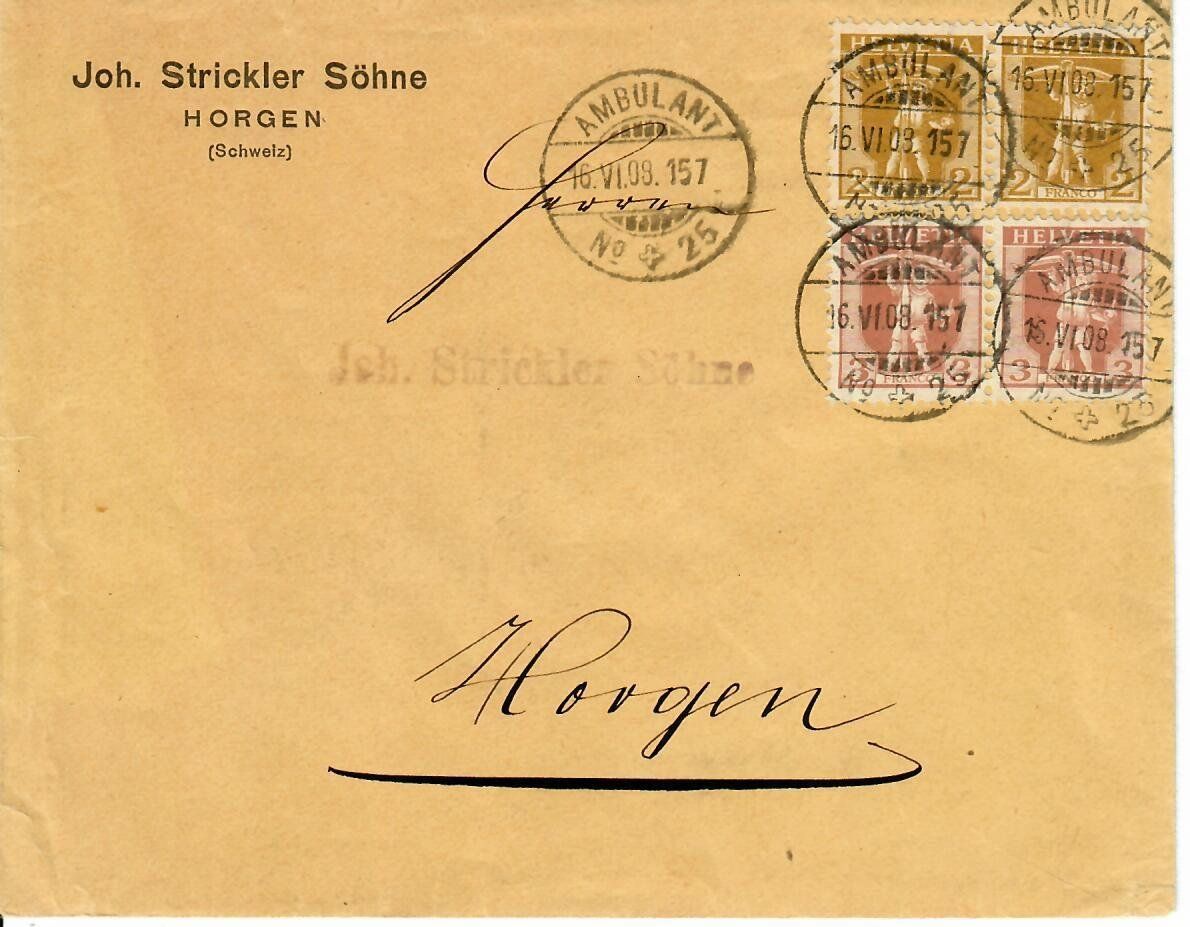 Joh. Strickler Söhne
HORGEN
(Schweiz)
AMBULANT
16.VI.08. 157
No 25
HELVETIA
2 2
AMBULANT
16.VI.08. 157
No 25
HELVETIA
2 FRANCO 2
AMBULANT
16.VI.08. 157
No 25
HELVETIA
3 FRANCO 3
AMBULANT
16.VI.08. 157
No 25
HELVETIA
3 3
AMBULANT
16.VI.08. 157
No 25
Herren
Joh. Strickler Söhne
Horgen